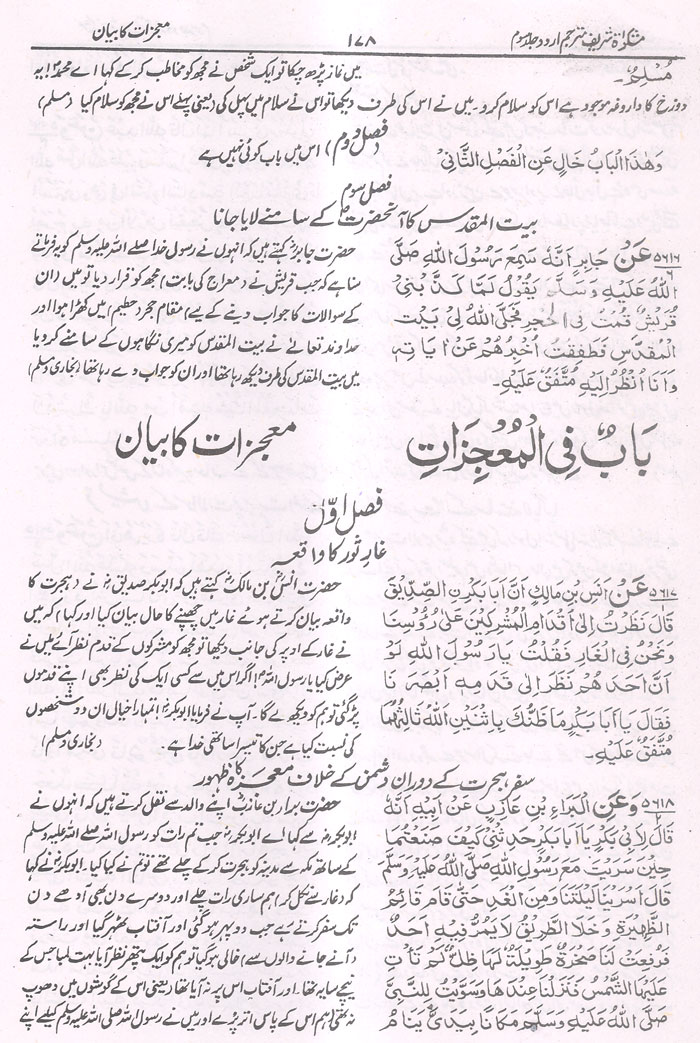 مشکوٰۃ شریف مترجم اردو جلد سوم
۱۷۸
معجزات کا بیان
مُسْلِمٌ۔
وَھٰذَا الْبَابُ خَالٍ عَنِ الْفَصْلِ الثَّانِیْ
میں نماز پڑھ چکا تو ایک شخص نے مجھ کو مخاطب کر کے کہا اے محمدؐ! یہ
دوزخ کا داروغہ موجود ہے اس کو سلام کرو۔ میں نے اس کی طرف دیکھا تو اس نے سلام میں پہل کی (یعنی پہلے اس نے مجھ کو سلام کیا (مسلم)
(فصل دوم) اس میں باب کوئی نہیں ہے
فصل سوم
بیت المقدس کا آنحضرتؐ کے سامنے لایا جانا
۵۶۱۶ عَنْ جَابِرٍ اَنَّهٗ سَمِعَ رَسُوْلَ اللهِ صَلَّی
اللهُ عَلَيْهِ وَسَلَّمَ يَقُوْلُ لَمَّا كَذَّبَنِیْ
قُرَيْشٌ قُمْتُ فِی الْحِجْرِ فَجَلَّی اللهُ لِیْ بَيْتَ
الْمَقْدَسِ فَطَفِقْتُ اُخْبِرُهُمْ عَنْ اٰيَاتِهٖ
وَاَنَا اَنْظُرُ اِلَيْهِ مُتَّفَقٌ عَلَيْهِ۔
حضرت جابرؓ کہتے ہیں کہ انہوں نے رسول خدا صلے اللہ علیہ وسلم کو یہ فرماتے
سنا ہے کہ جب قریش نے (معراج کی بابت) مجھ کو جھوٹا قرار دیا تو میں (ان
کے سوالات کا جواب دینے کے لیے) مقام حجر (حطیم) میں کھڑا ہوا اور
خداوند تعالےٰ نے بیت المقدس کو میری نگاہوں کے سامنے کر دیا
میں بیت المقدس کی طرف دیکھ رہا تھا اور ان کو جواب دے رہا تھا (بخاری و مسلم)
بَابٌ فِی الْمُعْجِزَاتِ
معجزات کا بیان
فصل اوّل
غارِ ثور کا واقعہ
۵۶۱۷ عَنْ اَنَسِ بْنِ مَالِكٍ اَنَّ اَبَا بَكْرِنِ الصِّدِّيْقَ
قَالَ نَظَرْتُ اِلٰی اَقْدَامِ الْمُشْرِكِيْنَ عَلٰی رُؤُوْسِنَا
وَنَحْنُ فِی الْغَارِ فَقُلْتُ يَا رَسُوْلَ اللهِ لَوْ
اَنَّ اَحَدَهُمْ نَظَرَ اِلٰی قَدَمِهٖ اَبْصَرَنَا
فَقَالَ يَا اَبَا بَكْرٍ مَا ظَنُّكَ بِاثْنَيْنِ اللهُ ثَالِثُهُمَا
مُتَّفَقٌ عَلَيْهِ۔
حضرت انسؓ بن مالکؓ کہتے ہیں کہ ابوبکر صدیقؓ نے (ہجرت کا
واقعہ بیان کرتے ہوئے غار میں چھپنے کا حال بیان کیا اور کہا) کہ میں
نے غار کے اوپر کی جانب دیکھا تو مجھ کو مشرکوں کے قدم نظر آئے میں نے
عرض کیا یا رسول اللہ! اگر اس میں سے کسی ایک کی نظر بھی اپنے قدموں
پر گئی تو ہم کو دیکھ لے گا۔ آپ نے فرمایا ابوبکرؓ! تمہارا خیال ان دو شخصوں
کی نسبت کیا ہے جن کا تیسرا ساتھی خدا ہے (بخاری و مسلم)
سفر ہجرت کے دوران دشمن کے خلاف معجزہ کا ظہور
۵۶۱۸ وَعَنِ الْبَرَاءِ بْنِ عَازِبٍ عَنْ اَبِيْهِ اَنَّهٗ
قَالَ لِاَبِیْ بَكْرٍ يَا اَبَا بَكْرٍ حَدِّثْنِیْ كَيْفَ صَنَعْتُمَا
حِيْنَ سَرَيْتَ مَعَ رَسُوْلِ اللهِ صَلَّی اللهُ عَلَيْهِ وَسَلَّمَ
قَالَ اَسْرَيْنَا لَيْلَتَنَا وَمِنَ الْغَدِ حَتّٰی قَامَ قَائِمُ
الظَّهِيْرَةِ وَخَلَا الطَّرِيْقُ لَا يَمُرُّ فِيْهِ اَحَدٌ
فَرُفِعَتْ لَنَا صَخْرَةٌ طَوِيْلَةٌ لَهَا ظِلٌّ لَمْ تَأْتِ
عَلَيْهَا الشَّمْسُ فَنَزَلْنَا عِنْدَهَا وَسَوَّيْتُ لِلنَّبِیِّ
صَلَّی اللهُ عَلَيْهِ وَسَلَّمَ مَكَانًا بِيَدَیَّ يَنَامُ
حضرت براء بن عازبؓ اپنے والد سے نقل کرتے ہیں کہ انہوں نے
ابوبکرؓ سے کہا اے ابوبکرؓ جب تم رات کو رسول اللہ صلے اللہ علیہ وسلم
کے ساتھ مکہ سے مدینہ کو ہجرت کر کے چلے تھے تو تم نے کیا کیا۔ ابوبکرؓ نے کہا
کہ (غار سے نکل کر) ہم ساری رات چلے اور دوسرے دن بھی آدھے دن
تک سفر کرتے رہے جب دوپہر ہو گئی اور آفتاب ٹھہر گیا اور راستہ
(آنے جانے والوں سے) خالی ہو گیا تو ہم کو ایک پتھر نظر آیا بہت لمبا جس کے
نیچے سایہ تھا۔ اور آفتاب اس پر نہ آیا تھا (یعنی اس کے گوشوں میں دھوپ
نہ تھی) ہم اس کے پاس اتر پڑے اور میں نے رسول اللہ صلی اللہ علیہ وسلم کیلئے اپنے